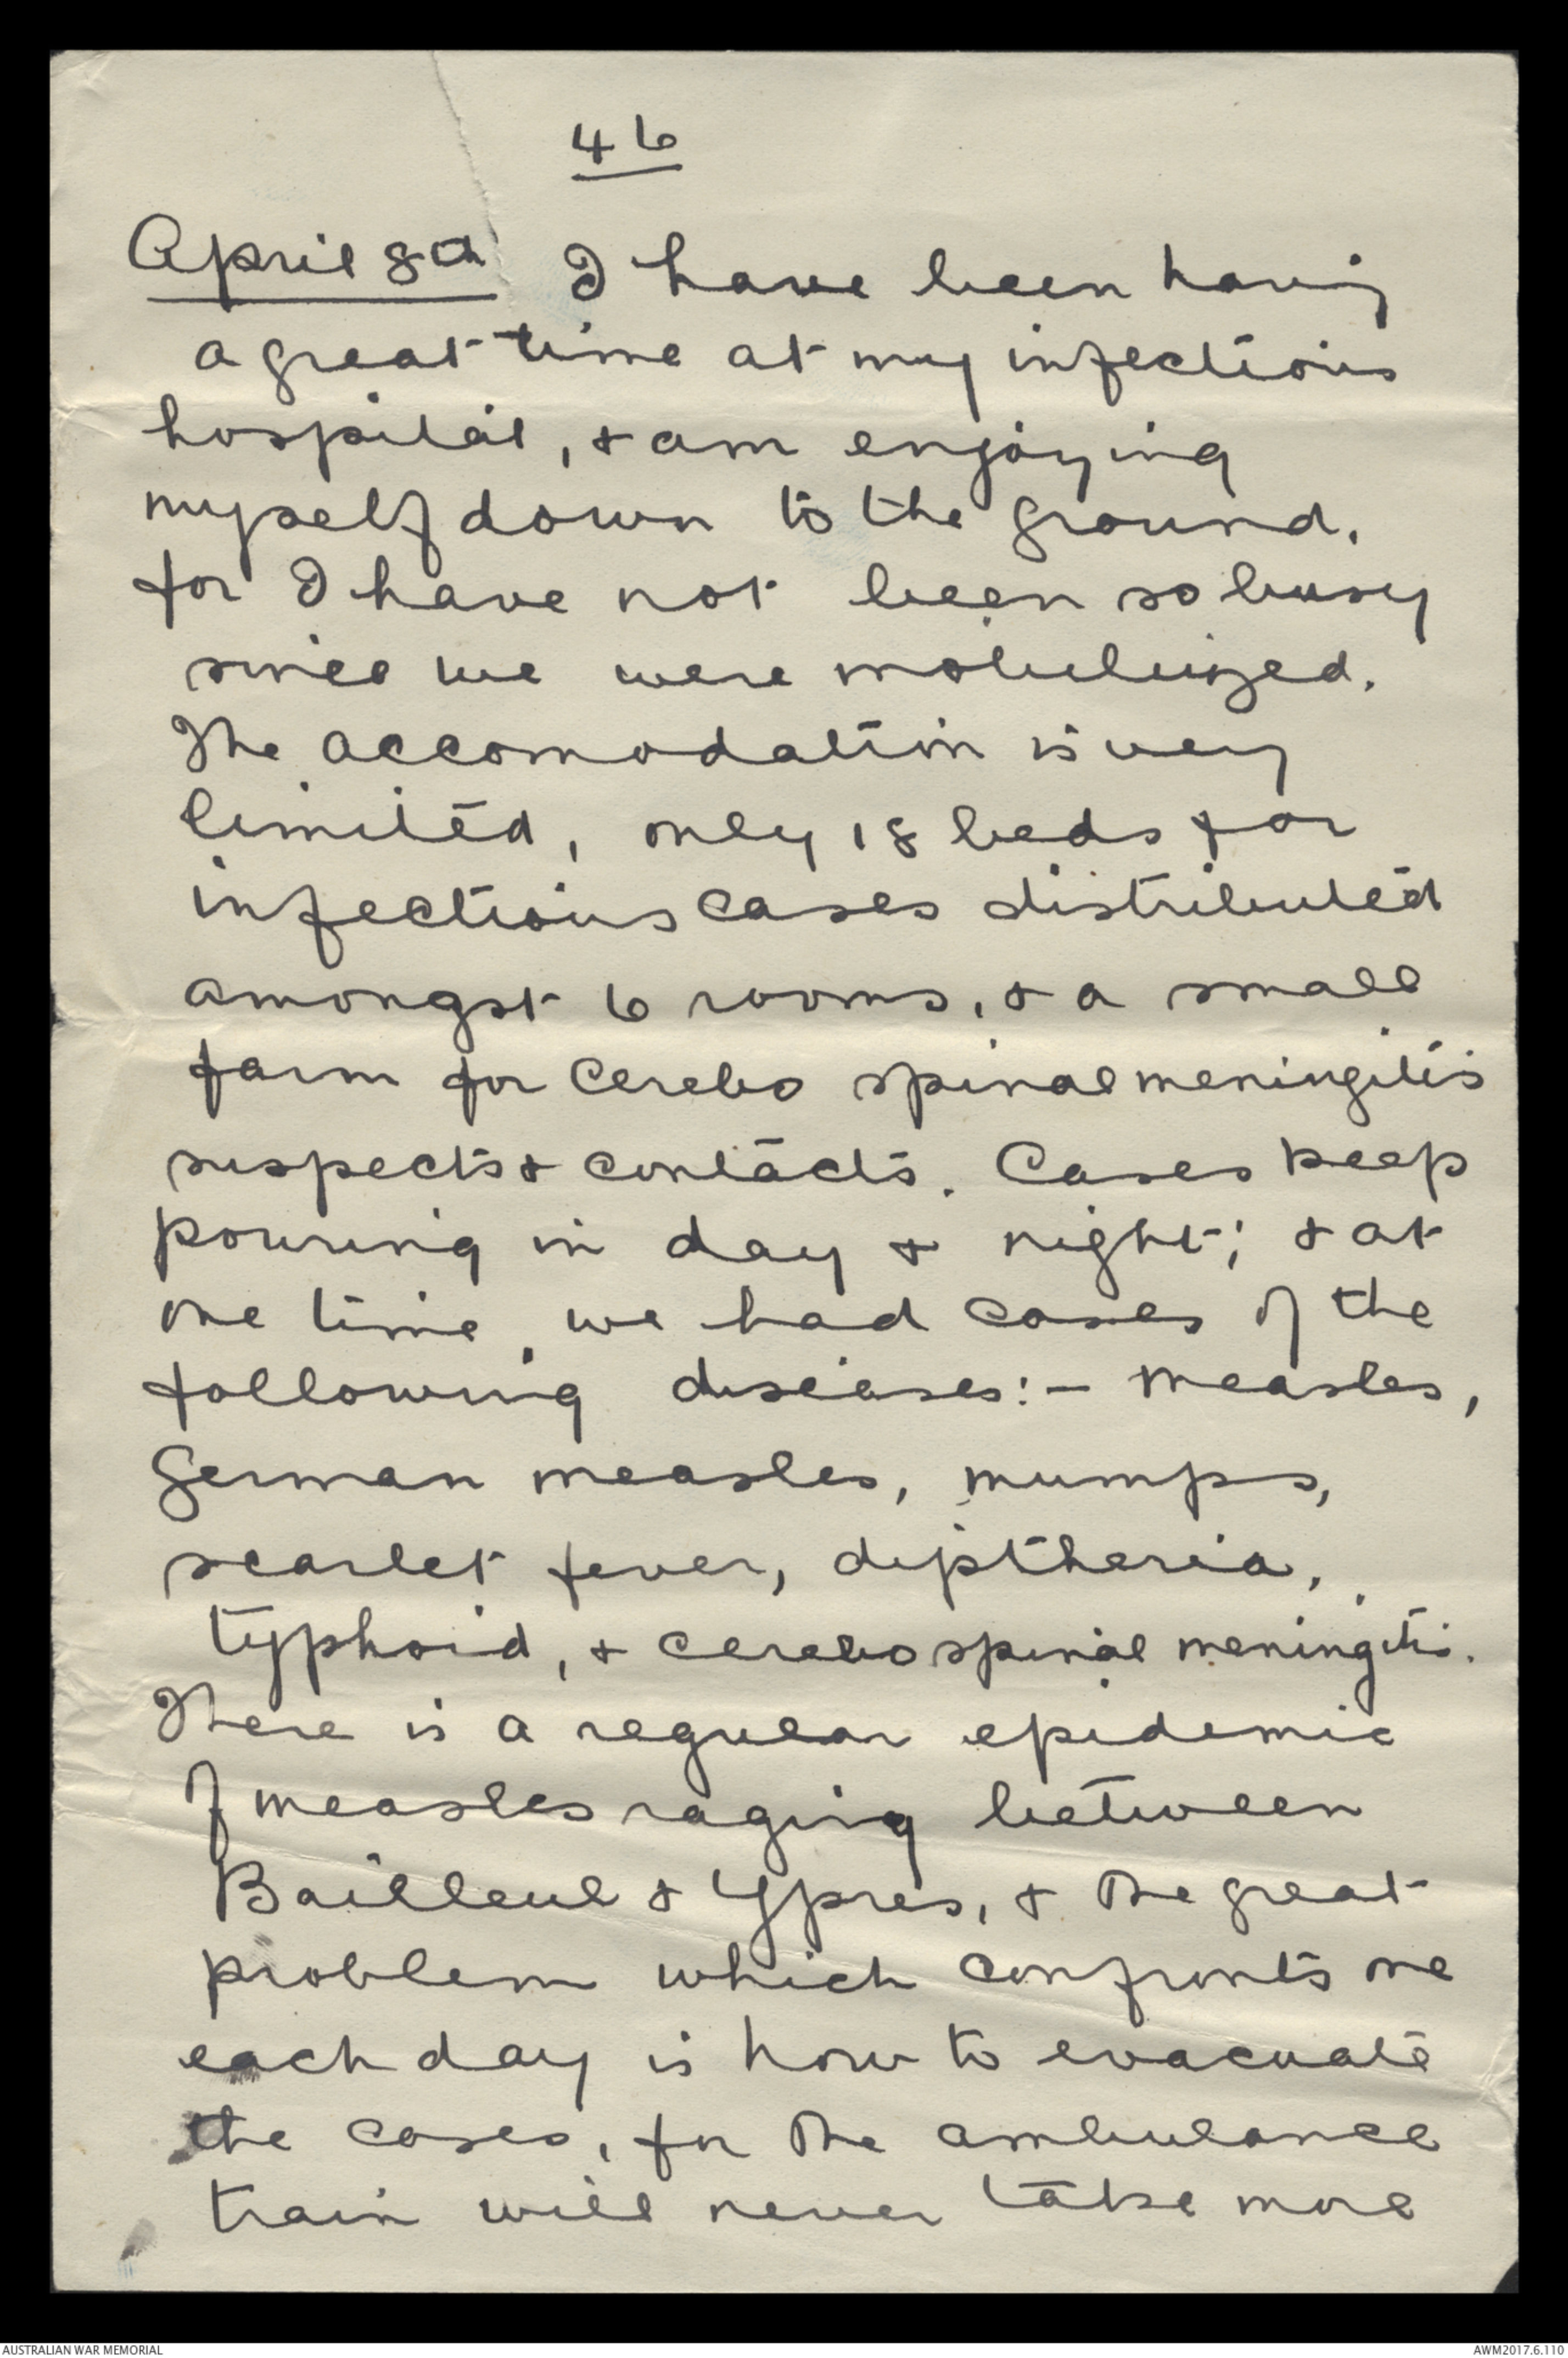 46
April 8th I have been having
a great time at my infectious
hospital, & am enjoying
myself down to the ground,
for I have not been so busy
since we were mobilized.
The accomodation is very
limited, only 18 beds for
infectious cases distributed
amongst 6 rooms, & a small
farm for Cerebo spinal meningitis
suspects & contacts. Cases keep
pouring in day & night; & at
one time, we had cases of the
following diseases:- Measles,
German measles, mumps,
scarlet fever, diptheria,
typhoid, & cerebo spinal meningitis.
There is a regular epidemic
of measles raging between
Bailleul & Ypres, & the great
problem which confronts me
each day is how to evacuate
the cases, for the ambulance
train will never take more
AUSTRALIAN WAR MEMORIAL
AWM2017.6.110